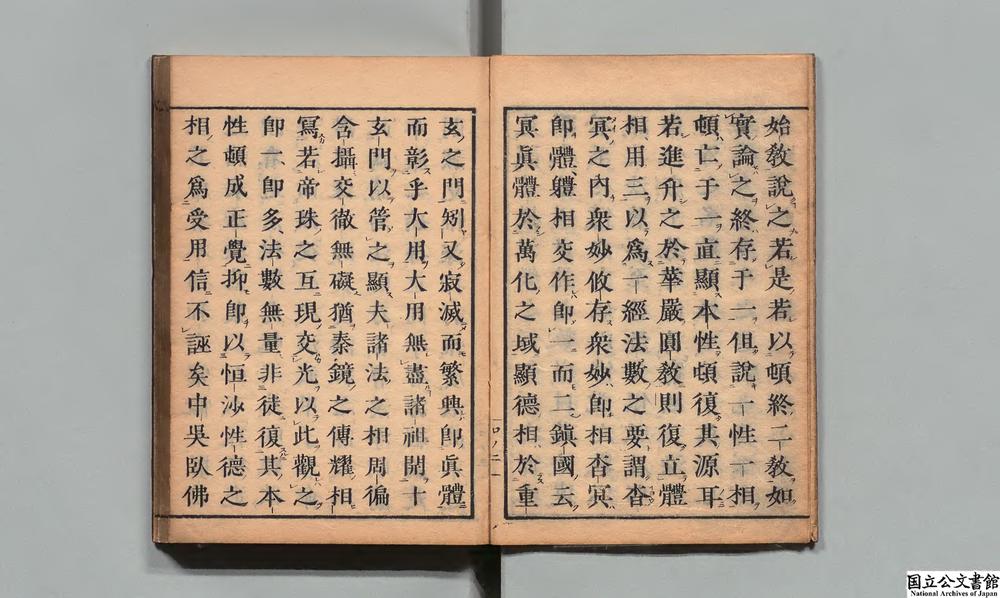 始教說之若是若以頓終二教如
實論之終存于二但說一性一相
頓亡于一直顯本性頓復其源耳
若進升之於華嚴圓教則復立體
相用三以爲一經法數之要謂杳
冥之內衆妙攸存衆妙卽相杳冥
卽體體相交作卽一而二鎭國云
冥眞體於萬化之域顯德相於重
玄之門矧又寂滅而繁興卽眞體
而彰乎大用大用無盡諸祖開十
玄門以管之顯夫諸法之相周徧
含攝交徹無礙猶秦鏡之傳耀相
寫若帝珠之互現交光以此觀之
卽一卽多法數無量非徒復其本
性頓成正覺抑卽以恒沙性德之
相之爲受用信不誣矣中吳臥佛
国立公文書館
National Archives of Japan